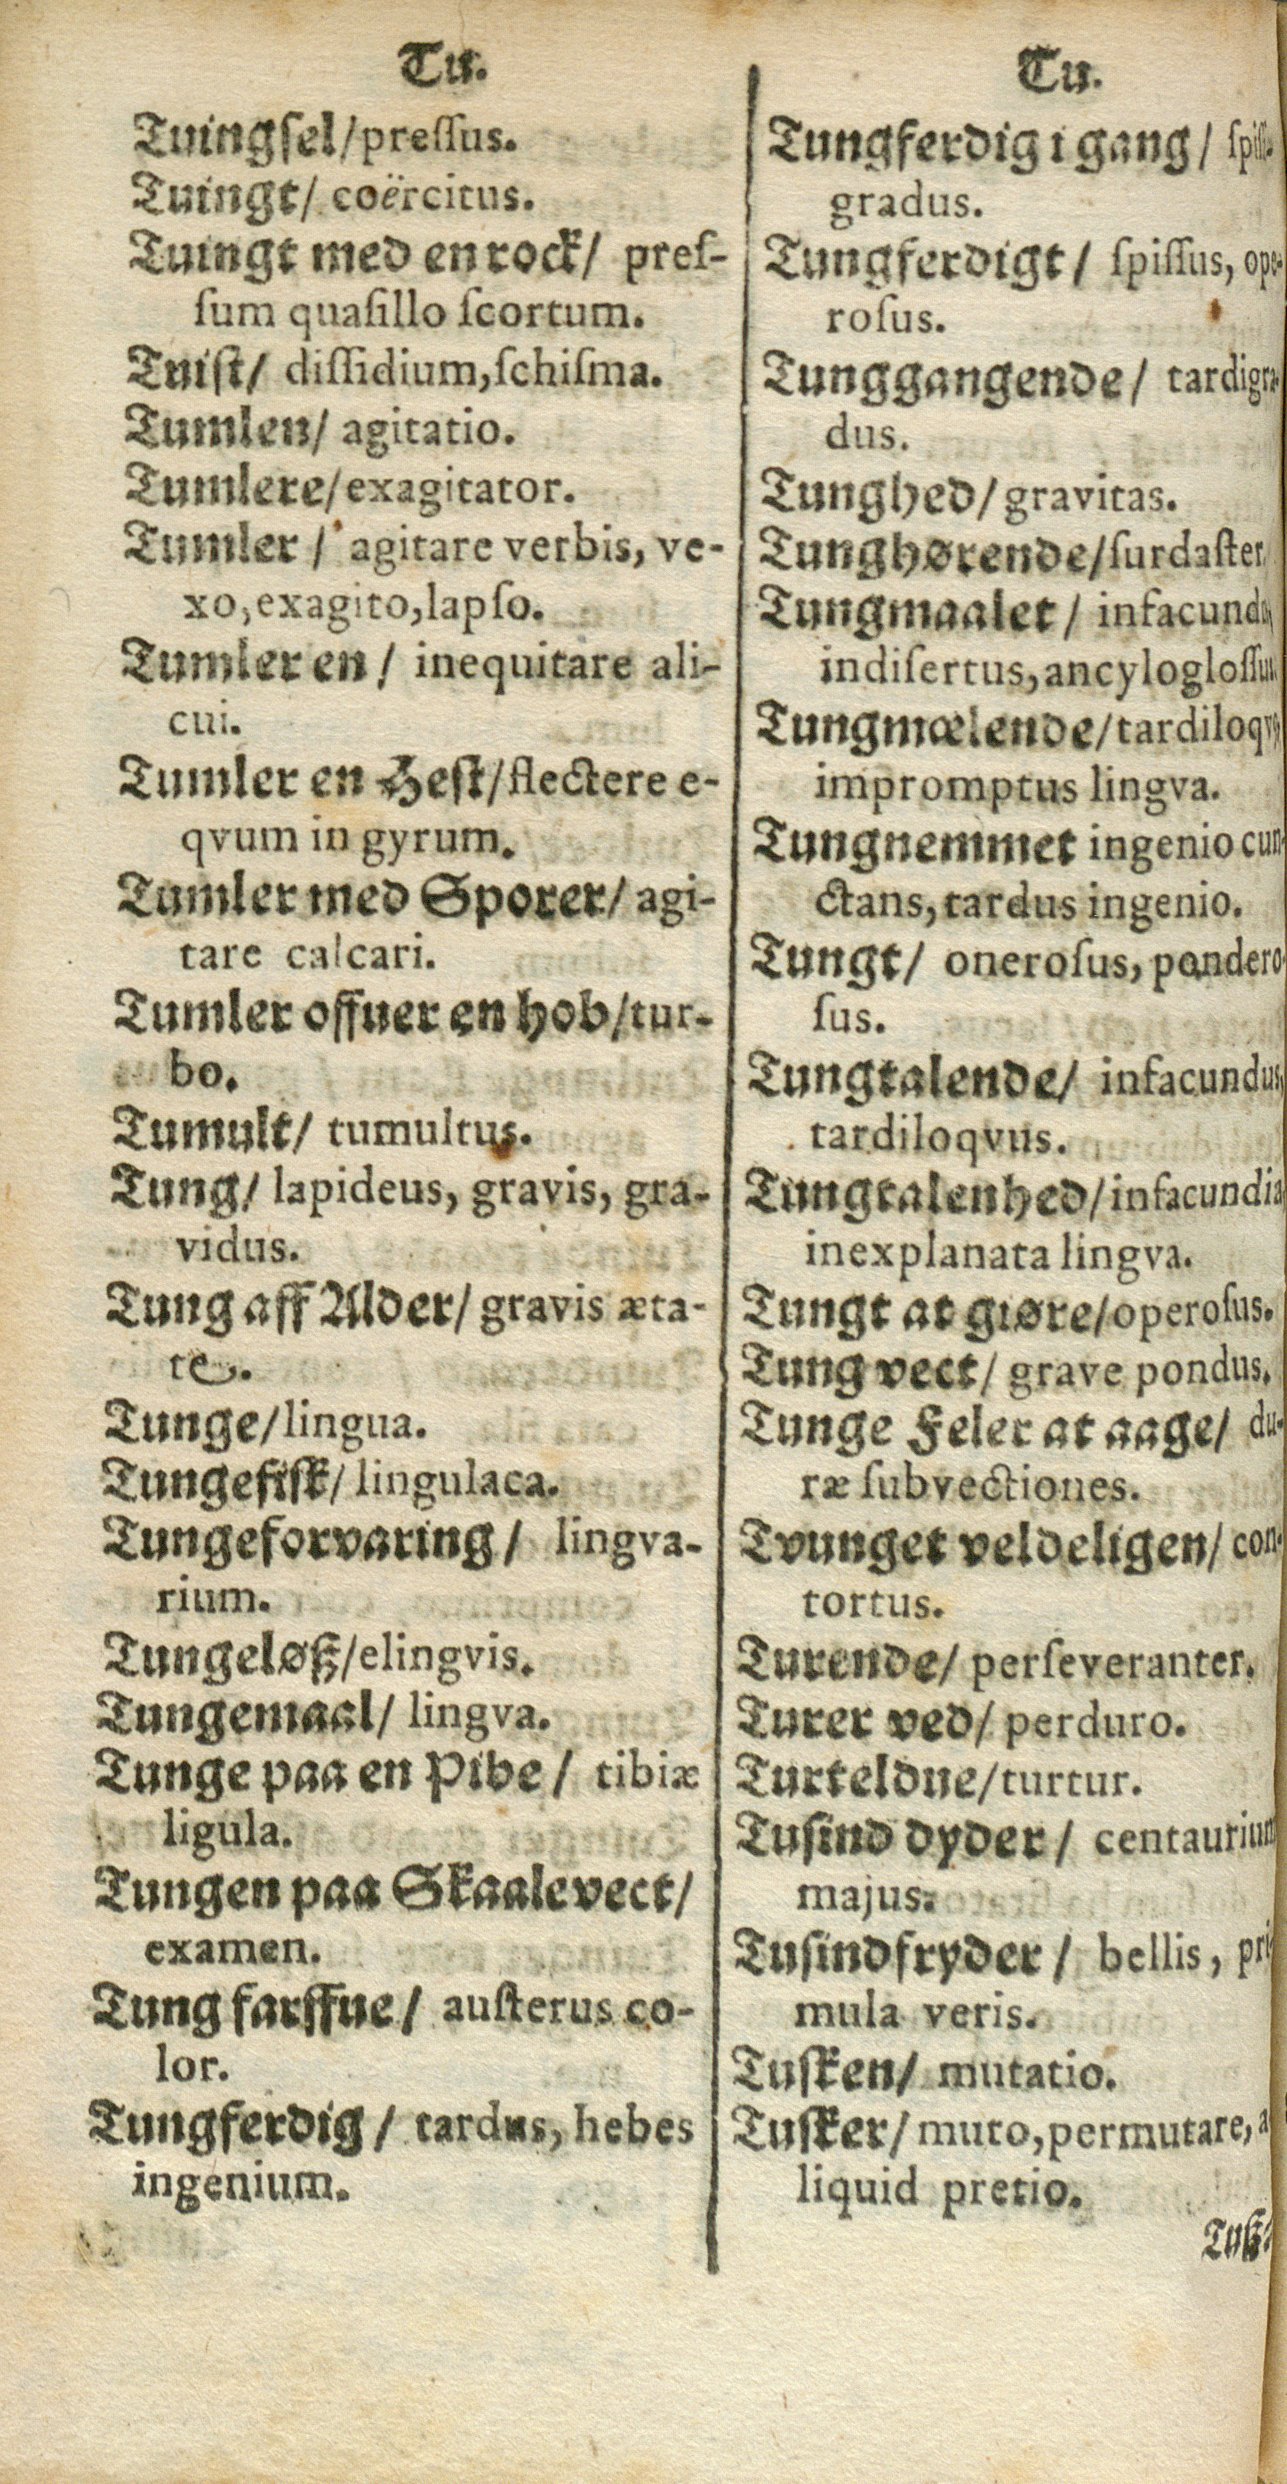 Tu.
Tuingsel/pressus.
Tuingt/ coërcitus.
Tuingt med en rock/ pres-
sum quasillo scortum.
Tuist/ dissidium, schisma.
Tumlen/ agitatio.
Tumlere/exagitator.
Tumler / agitare verbis, ve-
xo, exagito, lapso.
Tumler en / inequitare ali-
cui.
Tumler en Hest/flectere e-
qvum in gyrum.
Tumler med Sporer/ agi-
tare calcari.
Tumler offuer en hob/tur-
bo.
Tumult/ tumultus.
Tung/ lapideus, gravis, gra-
vidus.
Tung aff Alder/ gravis æta-
te.
Tunge/lingua.
Tungefisk/ lingulaca.
Tungeforvaring / lingva-
rium.
Tungeløß/elingvis.
Tungemaal/ lingva.
Tunge paa en Pibe / tibiæ
ligula.
Tungen paa Skaalevect/
examen.
Tung farffue / austerus co-
lor.
Tungferdig / tardus, hebes
ingenium.
Tu.
Tungferdig i gang/ spiss-
gradus.
Tungferdigt / spissus, ope-
rosus.
Tunggangende/ tardigra-
dus.
Tunghed/gravitas.
Tunghørende/surdaster
Tungmaalet / infacund
indisertus, ancylogloss
Tungmælende/tardiloqv
impromptus lingva.
Tungnemmet ingenio cun-
ctans, tardus ingenio.
Tungt/ onerosus, pondero-
sus.
Tungtalende/ infacundus,
tardiloqvus.
Tungtalenhed/infacundia
inexplanata lingva.
Tungt at giøre/operosus.
Tung vect/ grave pondus.
Tunge Feler at aage/ du-
ræ subvectiones.
Tvunget veldeligen/ con-
tortus.
Turende/ perseveranter.
Turer ved/ perduro.
Turteldue/turtur.
Tusind dyder / centaurium
majus.
Tusindfryder / bellis, pri-
mula veris.
Tusken/ mutatio.
Tusker/ muto, permutare, a
liquid pretio.
Tuß-